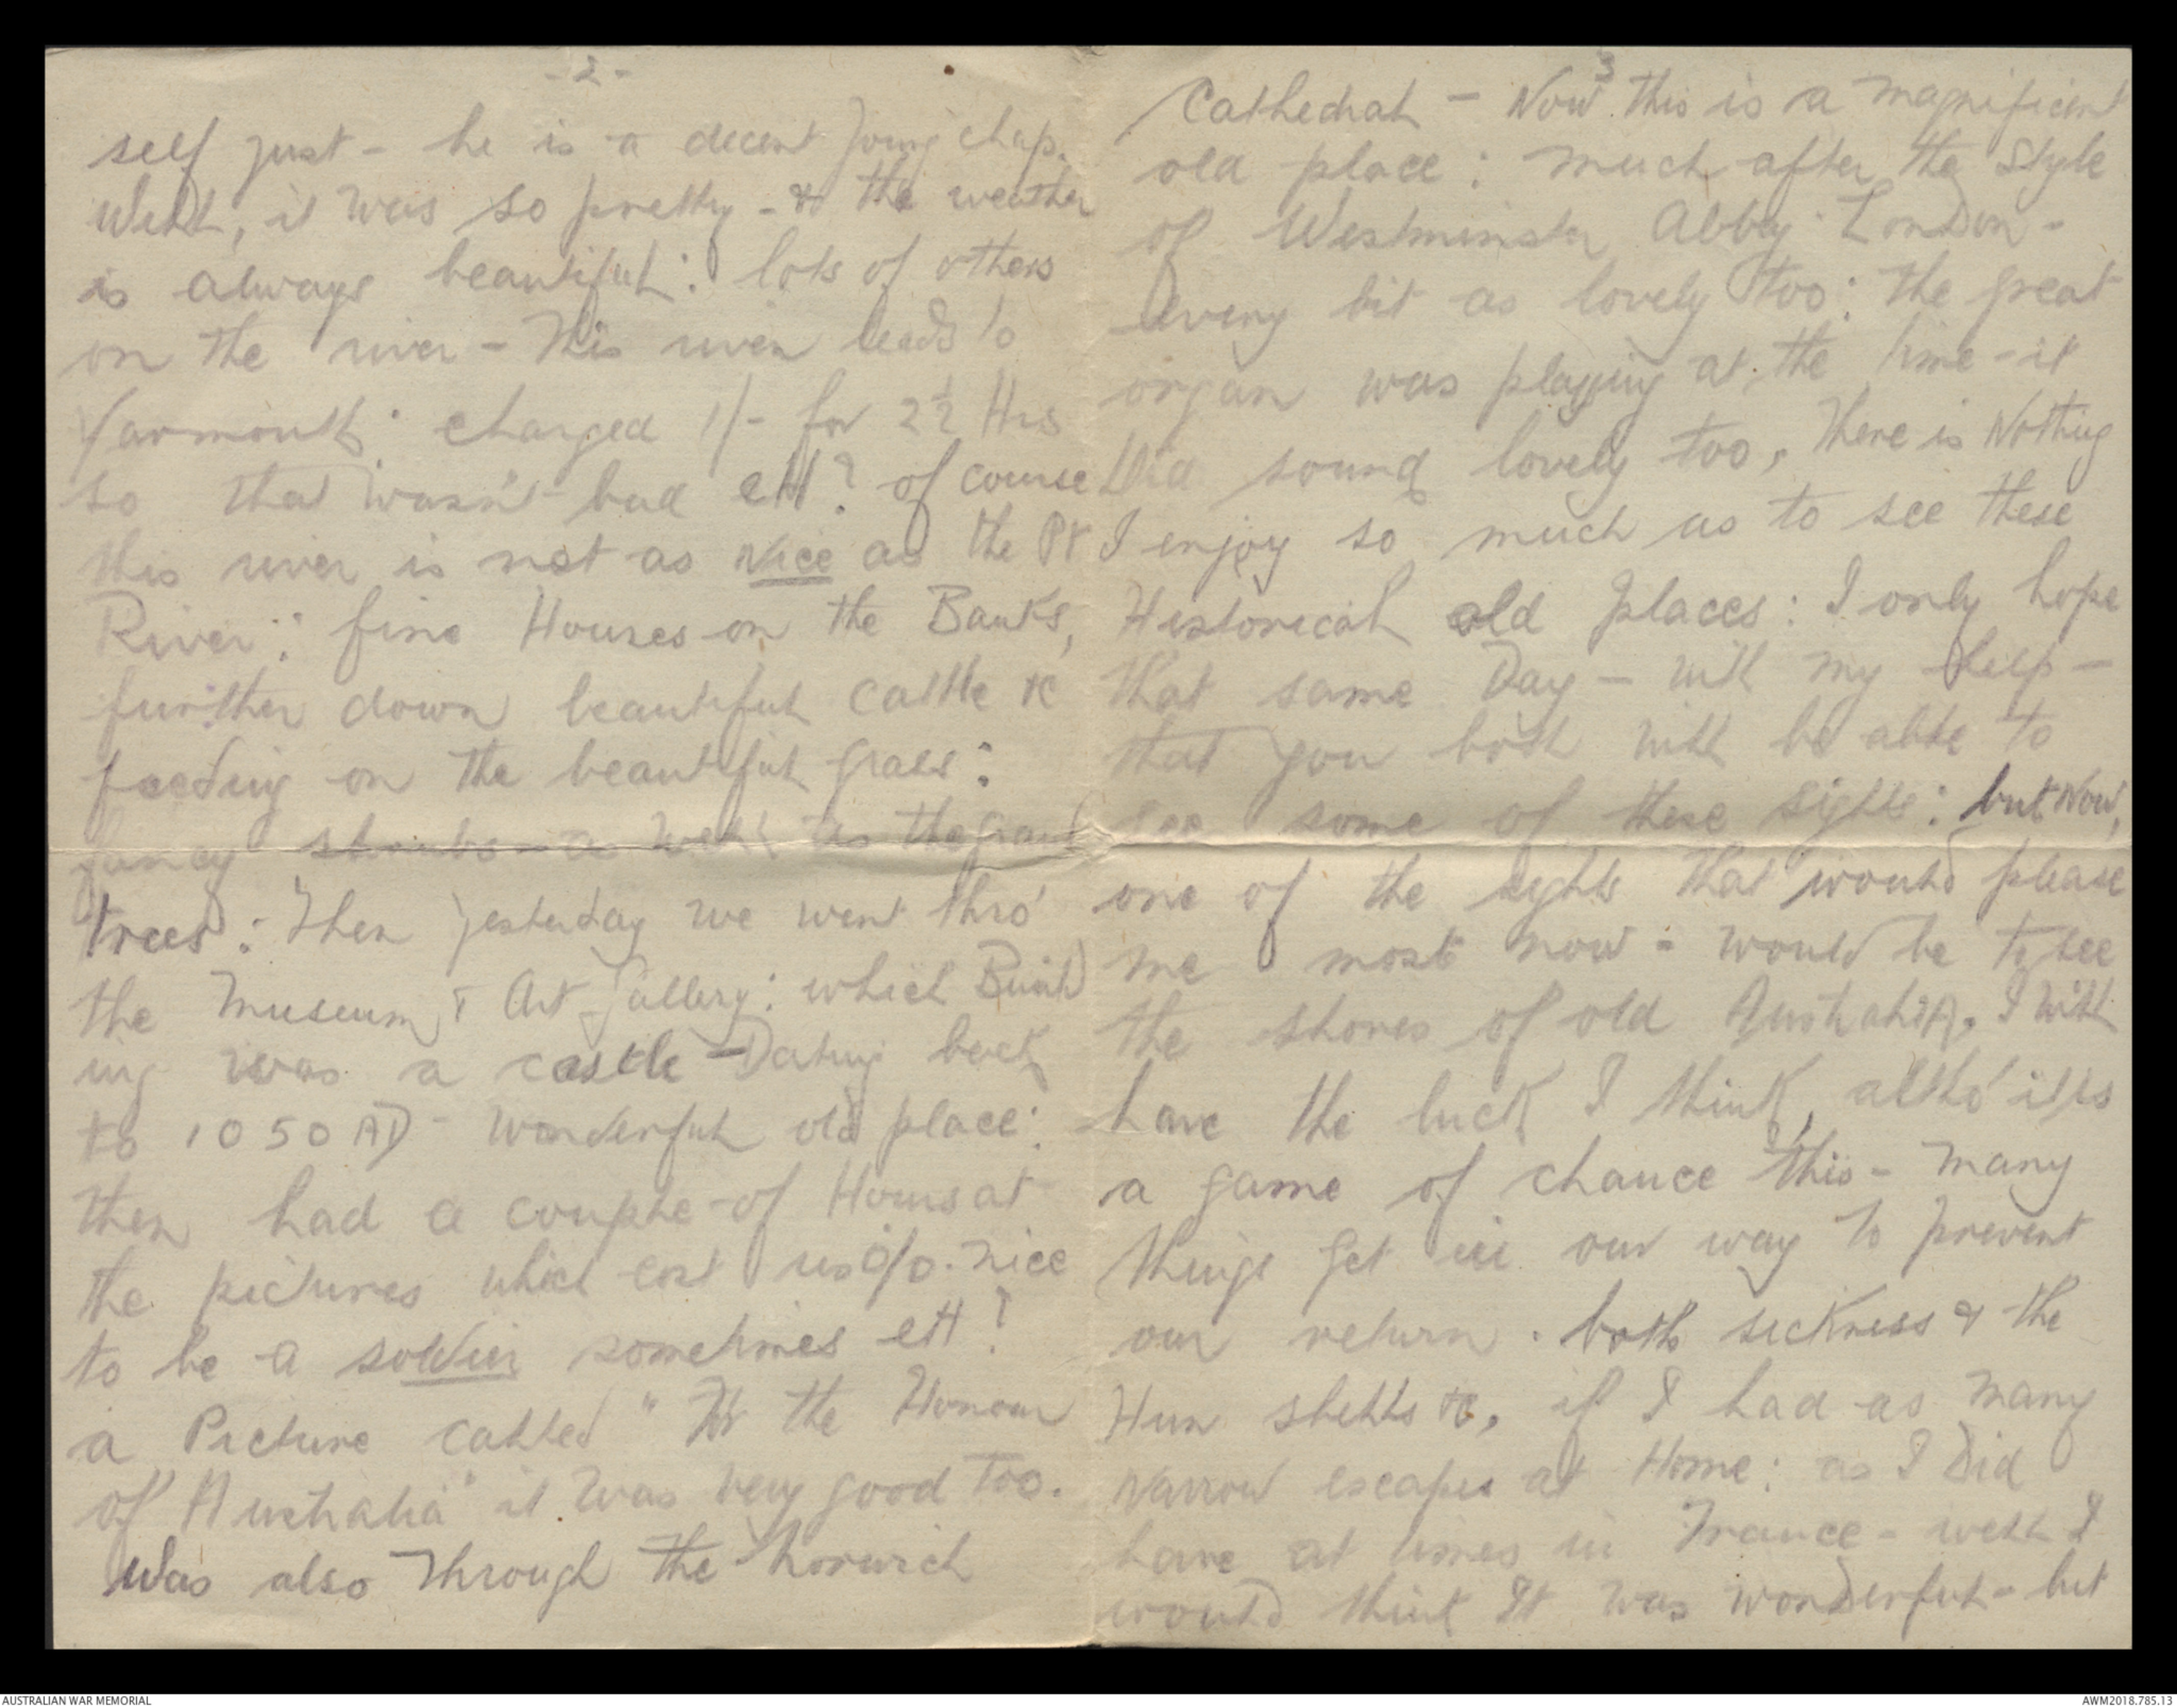 - 2 -
self just - he is a decent young chap.
Well, it was so pretty - & the weather
is always beautiful: lots of others
on the river - This river leads to
Yarmouth: charged 1/- for 2½ Hrs
so that wasn't bad eH? of course
this river is not as Nice as the Pt
River: fine Houses on the Banks,
further down beautiful cattle &c
feeding on the beautiful grass:
fancy shrubs - as well as the grand
trees: Then yesterday we went thro'
the Museum & Art Gallery: which Build
ing was a castle - Dating back
to 1050 AD - wonderful old place:
then had a couple of Hours at
the pictures which cost us o/o. nice
to be a soldier sometimes eH!
a Picture called "For the Honour
of Australia" it was very good too.
Was also Through the Norwich
3
Cathedral - Now this is a magnificent
old place: much after the style
of Westminster Abby London -
every bit as lovely too: the great
organ was playing at the time - it
Did sound lovely too, There is Nothing
I enjoy so much as to see these
Historical old places: I only hope
that some Day - with my help -
that you both will be able to
see some of these sights: but Now,
one of the sights that would please
me most now - would be to see
the shores of old AustraliA. I will
have the luck I think, altho' it is
a game of chance this - many
things get in our way to prevent
our return. both sickness & the
Hun shells &c, if I had as many
Narrow escapes at Home: as I Did
have at times in France - well I
would think It was wonderful - but
AUSTRALIAN WAR MEMORIAL
AWM2018.785.13